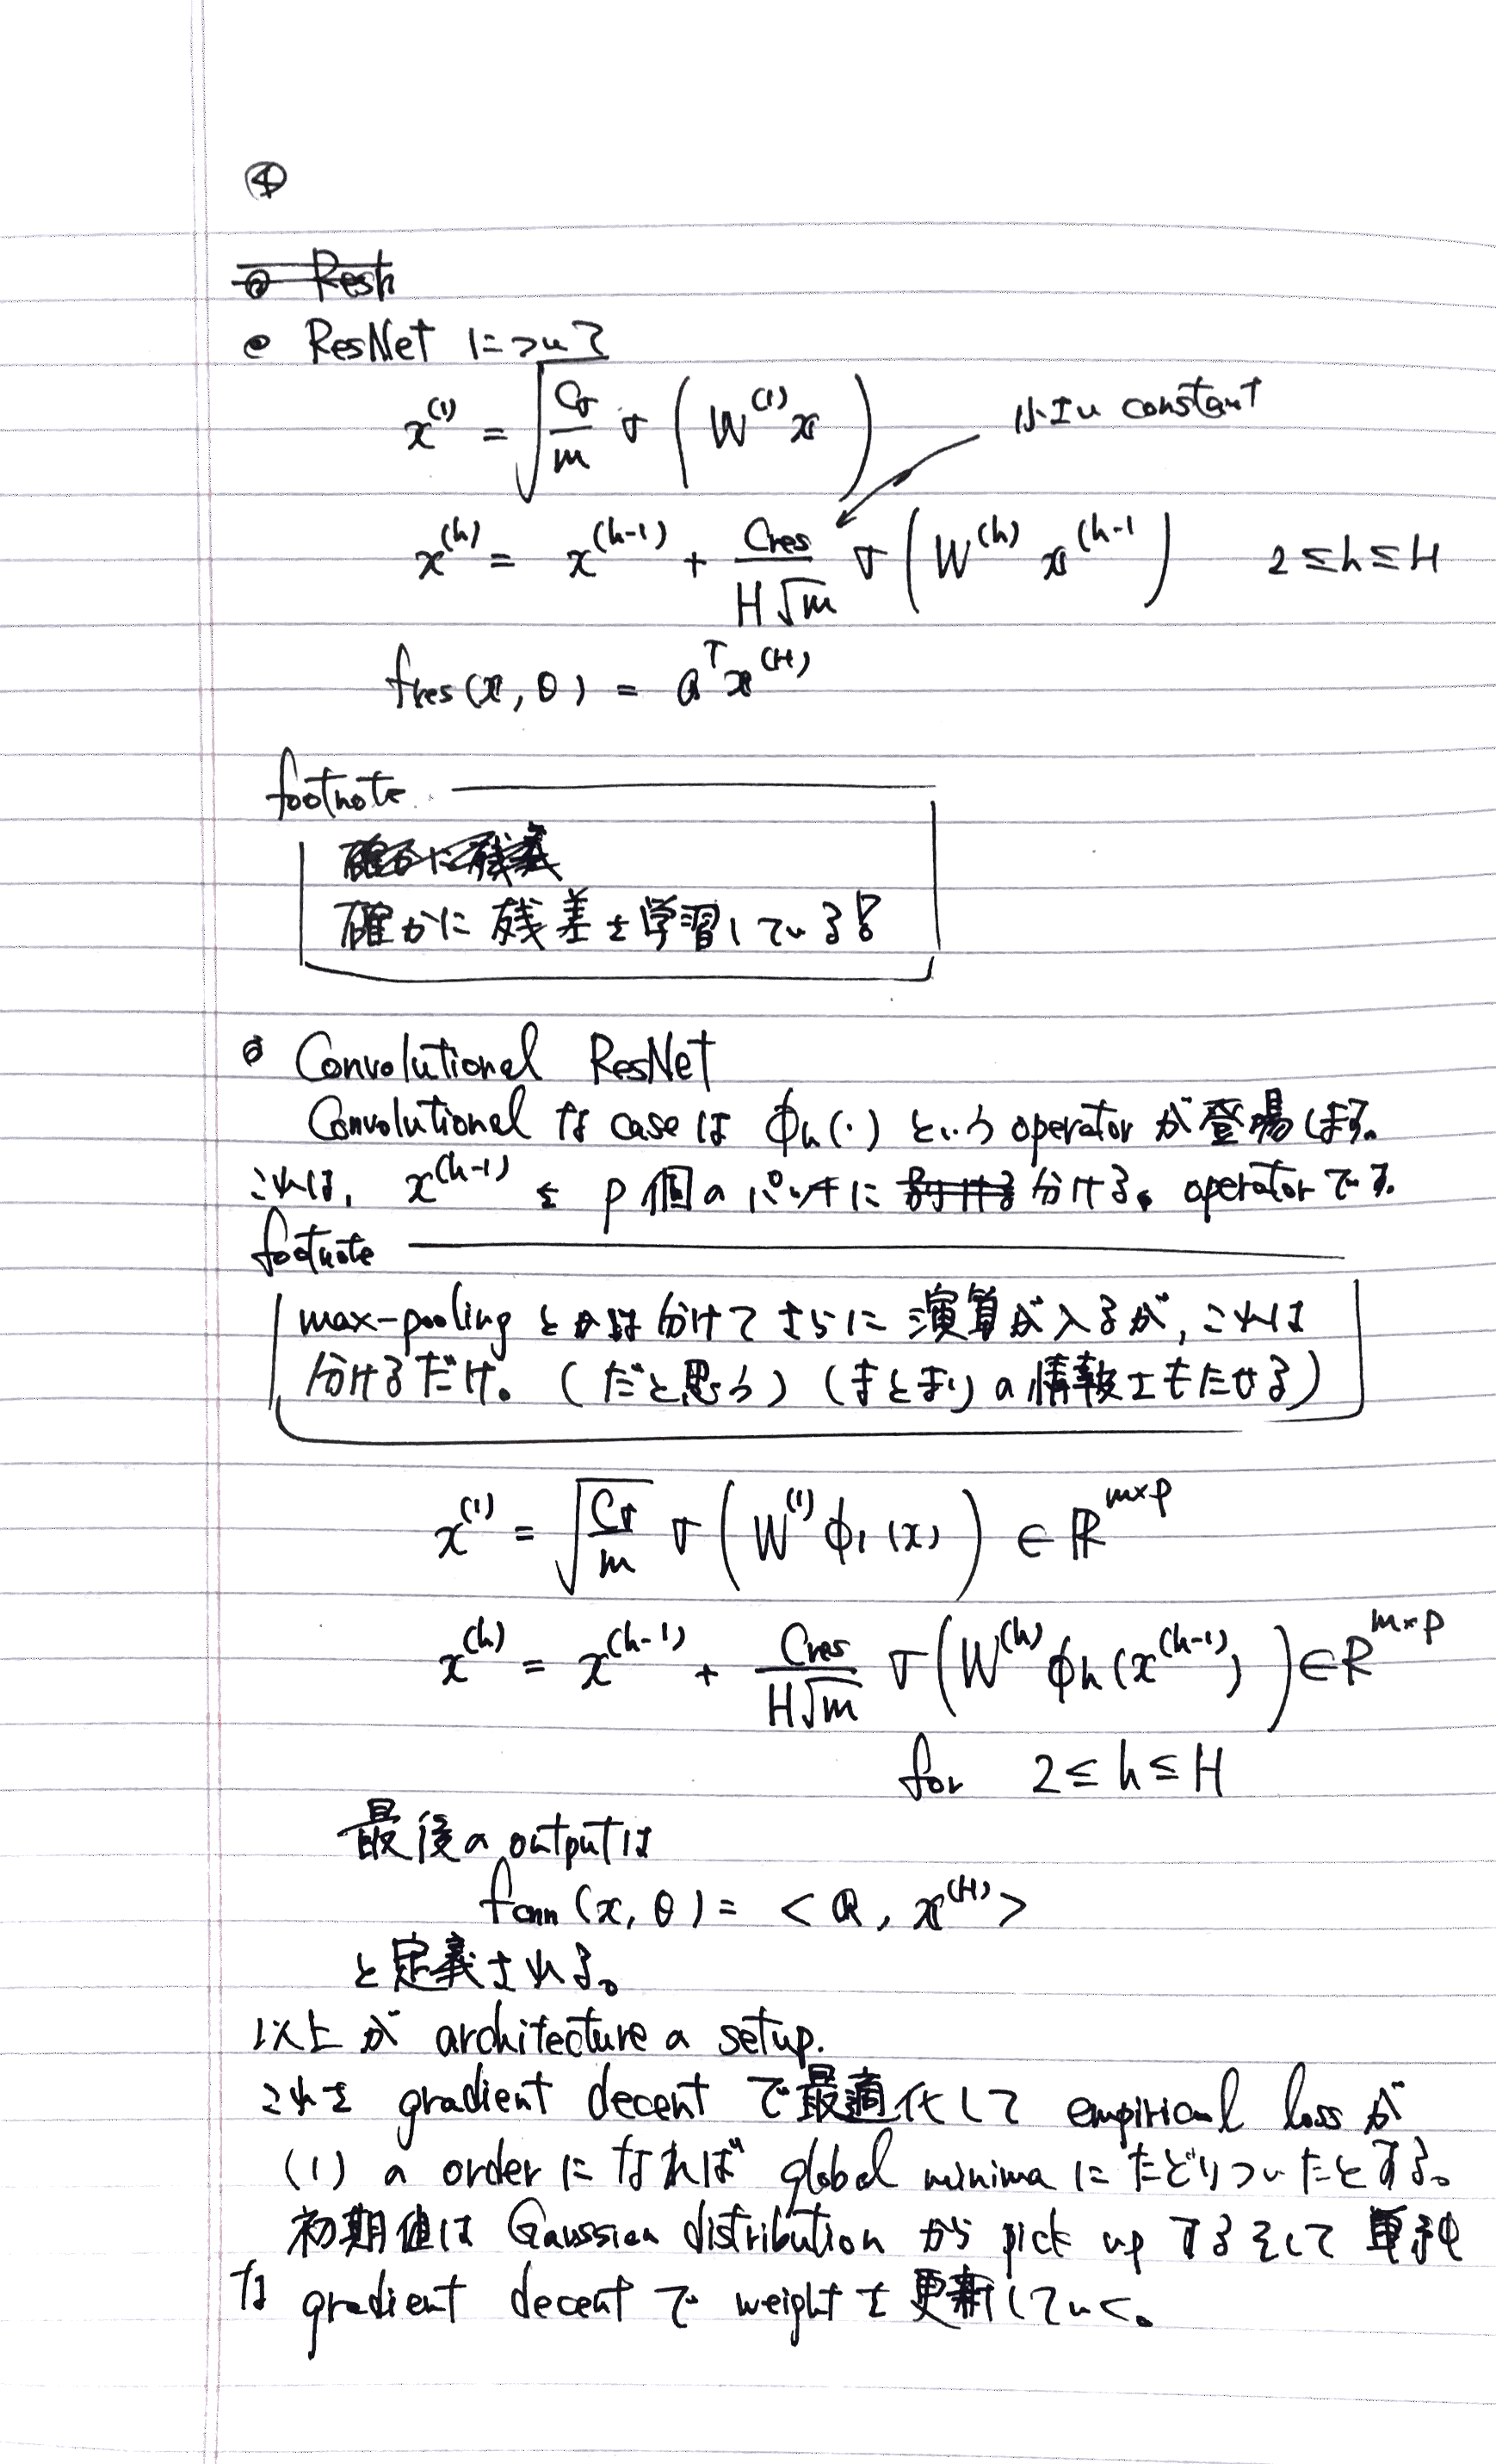 ④
ResNet について
x^(1) = √(Cσ/m) σ(W^(1) x)
小さい constant
x^(h) = x^(h-1) + Cres/(H√m) σ(W^(h) x^(h-1) 2≤h≤H
fres(x, θ) = a^T x^(H)
footnote
確かに残差を学習している!
Convolutional ResNet
Convolutional な case は ϕh(・) という operator が登場します。
これは, x^(h-1) を p個のパッチに 分ける。operatorです。
footnote
max-pooling とかは分けてさらに演算が入るが, これは
分けるだけ。(だと思う) (まとまりの情報をもたせる)
x^(1) = √(Cσ/m) σ(W^(1) ϕ1(x)) ∈ R^m×p
x^(h) = x^(h-1) + Cres/(H√m) σ(W^(h) ϕh(x^(h-1))) ∈ R^m×p
for 2≤h≤H
最後の outputは
fcnn(x, θ) = <a, x^(H)>
と定義される。
以上が architecture の setup.
これを gradient decent で最適化して empirical loss が
(1) の order になれば global minima にたどりついたとする。
初期値は Gaussian distribution から pick up するそして 単純
な gradient decent で weight を更新していく。